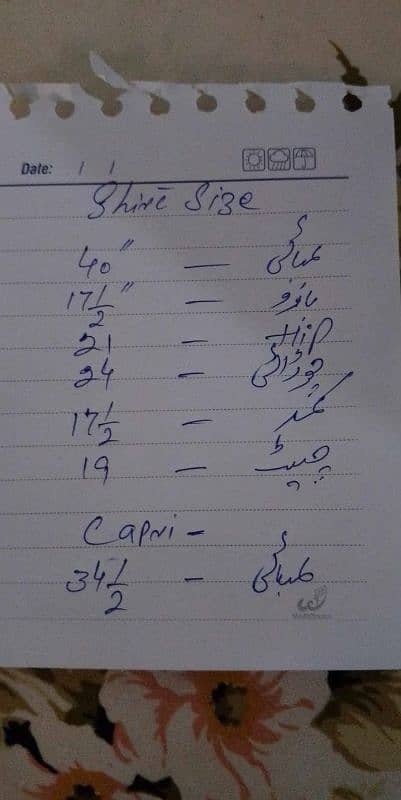 Date: / /
Shirt Size
لمبائی — 40"
بازو — 17 1/2"
Hip — 21
چوڑائی — 24
— 17 1/2
چیسٹ — 19
Capri -
لمبائی — 34 1/2